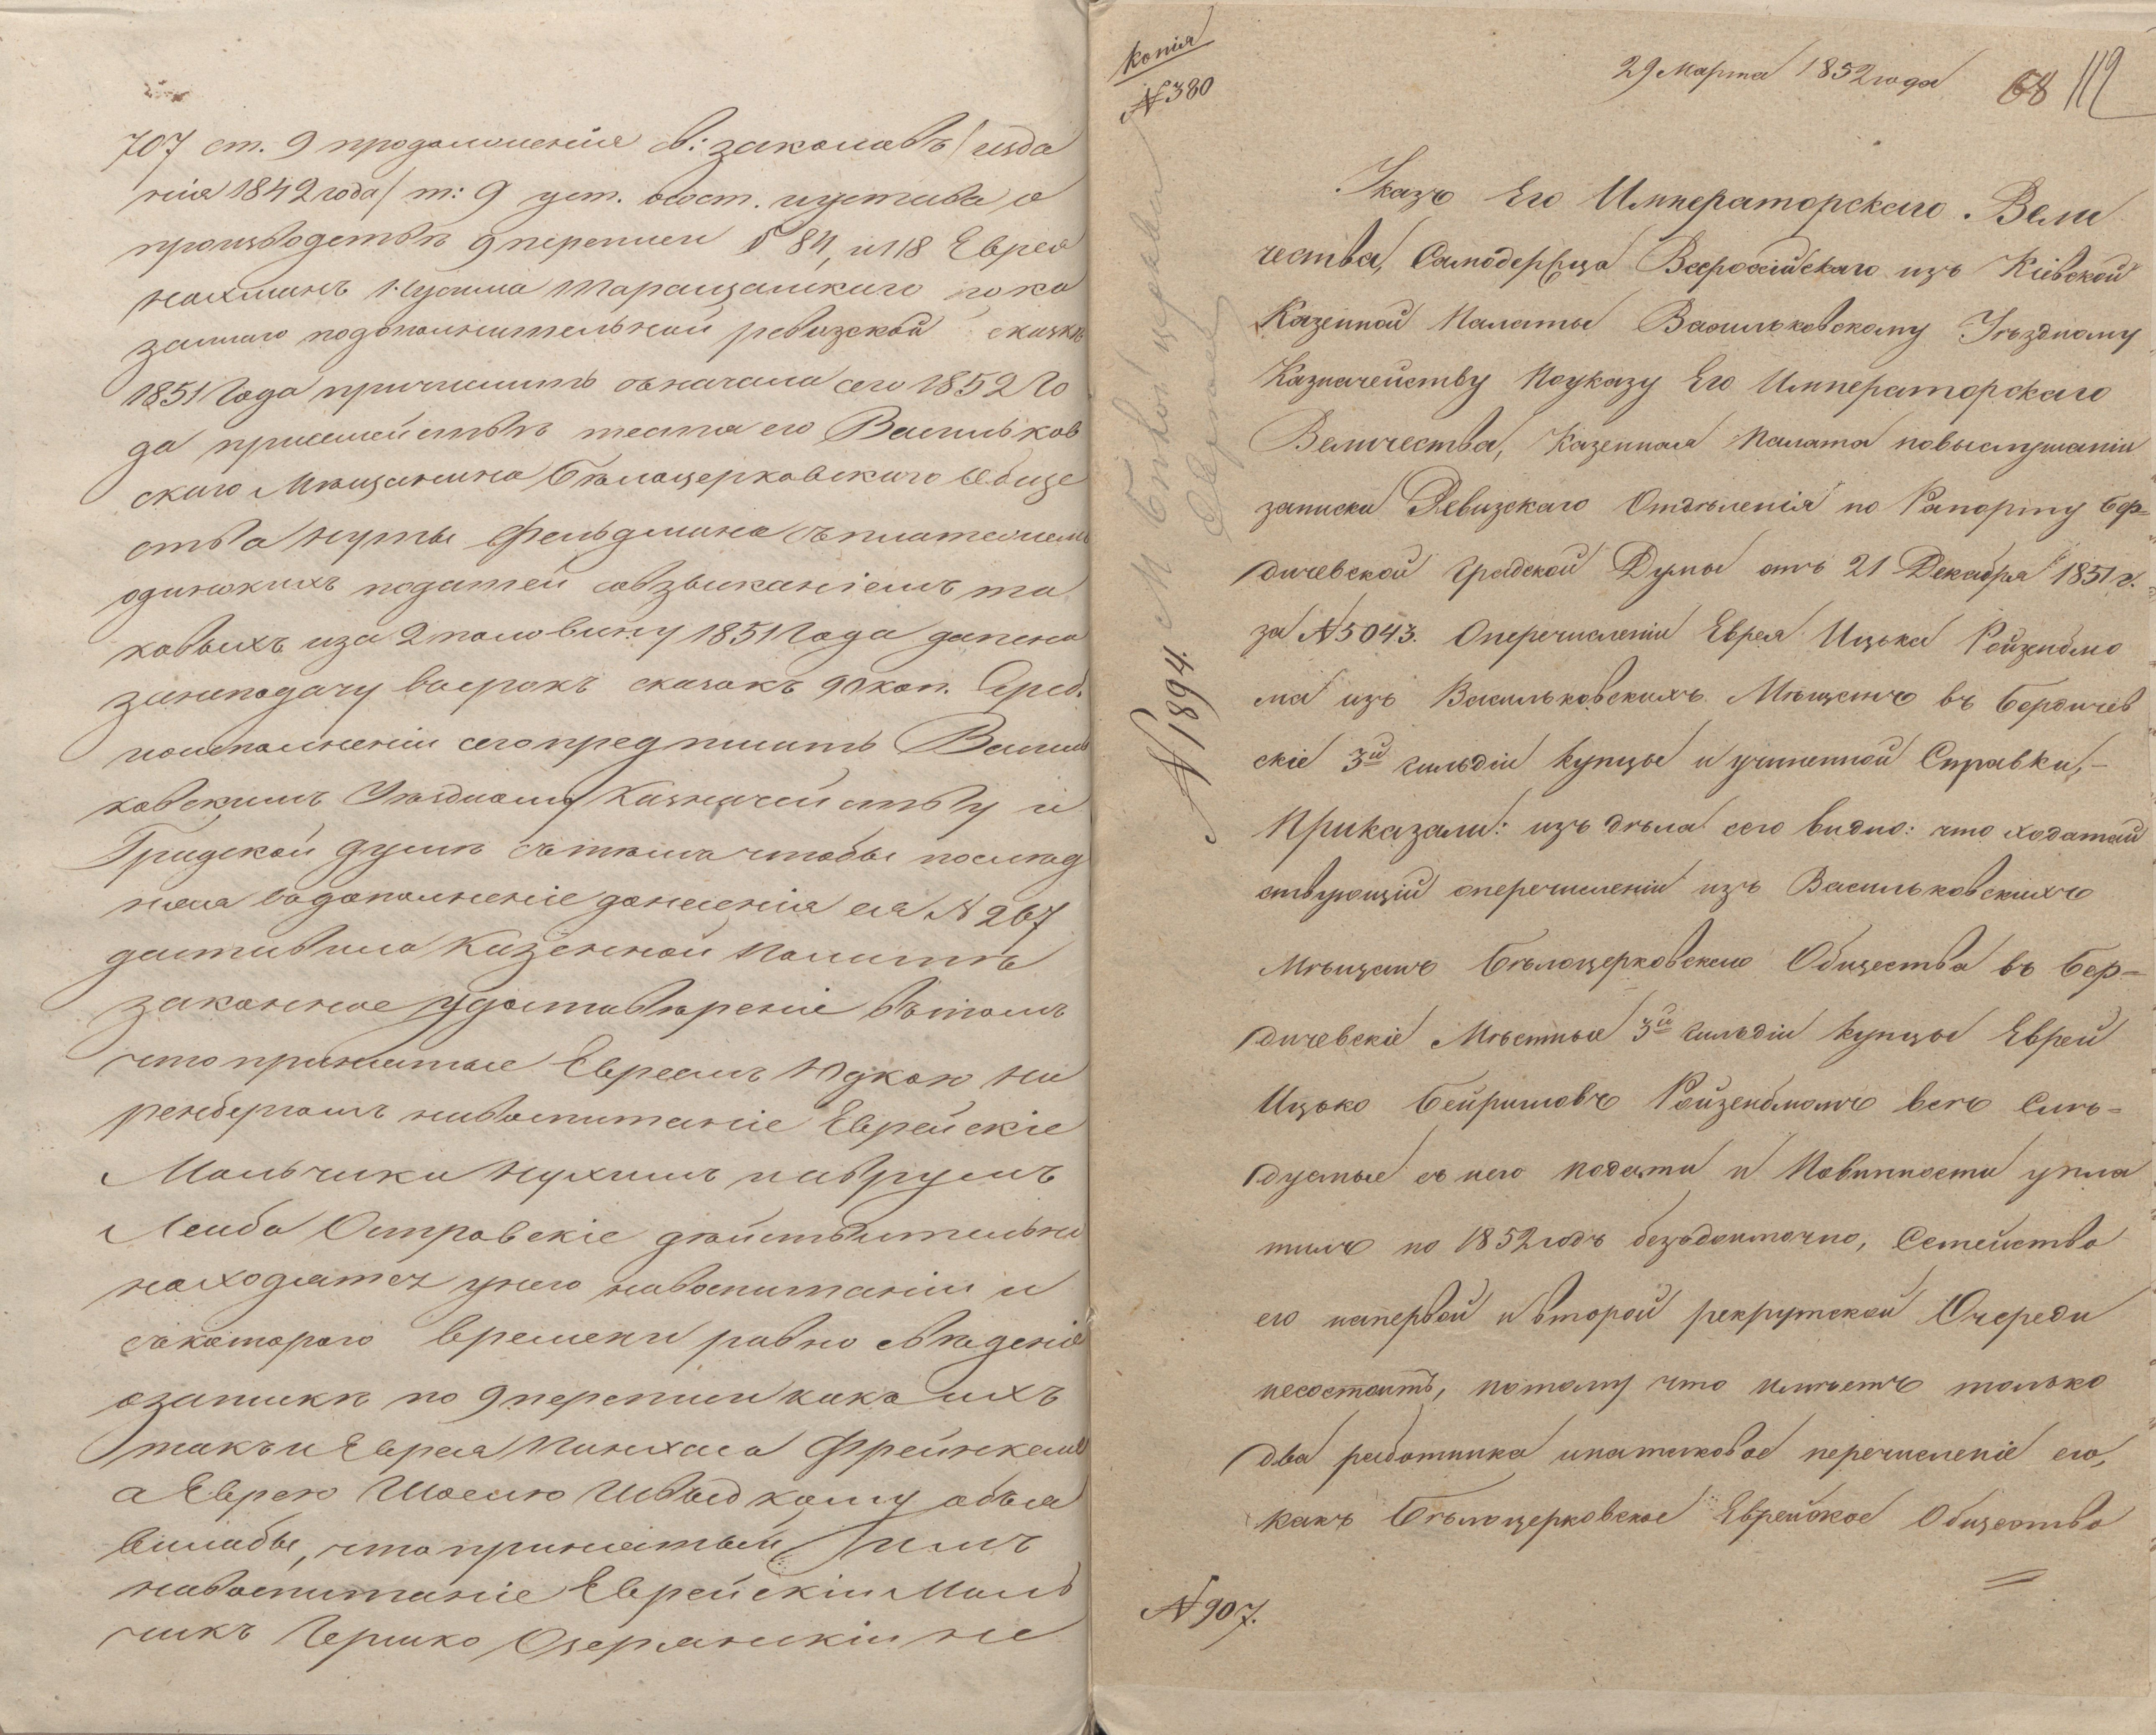 707 ст. 9 продолженія св: законовъ / изда
нія 1842 года / т: 9 уст. о сост. и устава о
производствѣ 9 переписи § 84, и 118 Еврея
Нахмана Нусина Таращанскаго пока
заннаго по дополнительной ревизской сказкѣ
1851 года причислить съ начала сего 1852 го
да при семействѣ тестя его Васильков
скаго Мѣщанина Бѣлоцерковскаго Обще
ства Нуты Фельдмана съ платежемъ
одинокихъ податей со взысканіемъ та
ковыхъ и за 2 половину 1851 года да пено
за неподачу в срокъ сказокъ 90 коп. Сереб.
по исполненіи сего предписать Василь
ковскимъ Уѣздному Казначейству и
Градской думѣ съ тѣмъ чтобы послѣд
няя въ дополненіе донесенія ея № 267
доставила Казенной Палатѣ
законное удостовѣреніе въ томъ
что принятые Евреемъ Юдкою Ни
ренбергомъ на воспитаніе Еврейскіе
Мальчики Нухимъ и Аврумъ
Лейба Островскіе дѣйствительно
находятся у него на воспитаніи и
съ котораго времени равно свѣденіе
о запискѣ по 9 переписи какъ ихъ
такъ и Еврея Пинхаса Френкеля
а Еврею Шоелю Швыдкому объя
вила бы, что принятый имъ
на воспитаніе Еврейскій Маль
чикъ Гершко Озерянскій не
Копія
№ 380
29 Марта 1852 года
68 112
Указъ Его Императорскаго Вели
чества, Самодержца Всероссійскаго изъ Кіевской
Казенной Палаты Васильковскому Уѣздному
Казначейству По указу Его Императорскаго
Величества, Казенная Палата по выслушаніи
записки Ревизскаго Отдѣленія по Рапорту Бер=
дичевской Градской Думы отъ 21 Декабря 1851 г.
за № 5043. О перечисленіи Еврея Ицька Ройзенблю
ма изъ Васильковскихъ Мѣщанъ въ Бердичев
скіе 3й гильдіи купцы и учиненной Справки,–
Приказали: изъ дѣла сего видно: что ходатай
ствующій о перечисленіи изъ Васильковскихъ
Мѣщанъ Бѣлоцерковскаго Общества въ Бер=
дичевскіе Мѣстные 3й гильдіи купцы Еврей
Ицько Бейришовъ Ройзенблюмъ всѣ Слѣ=
дуемые съ него подати и Повинности упла
тилъ по 1852 годъ бездоимочно, Семейство
его на первой и второй рекрутской Очереди
несостоитъ, потому что имѣетъ только
два работника и на таковое перечисленіе его,
какъ Бѣлоцерковское Еврейское Общество
№ 1894.
№ 907.